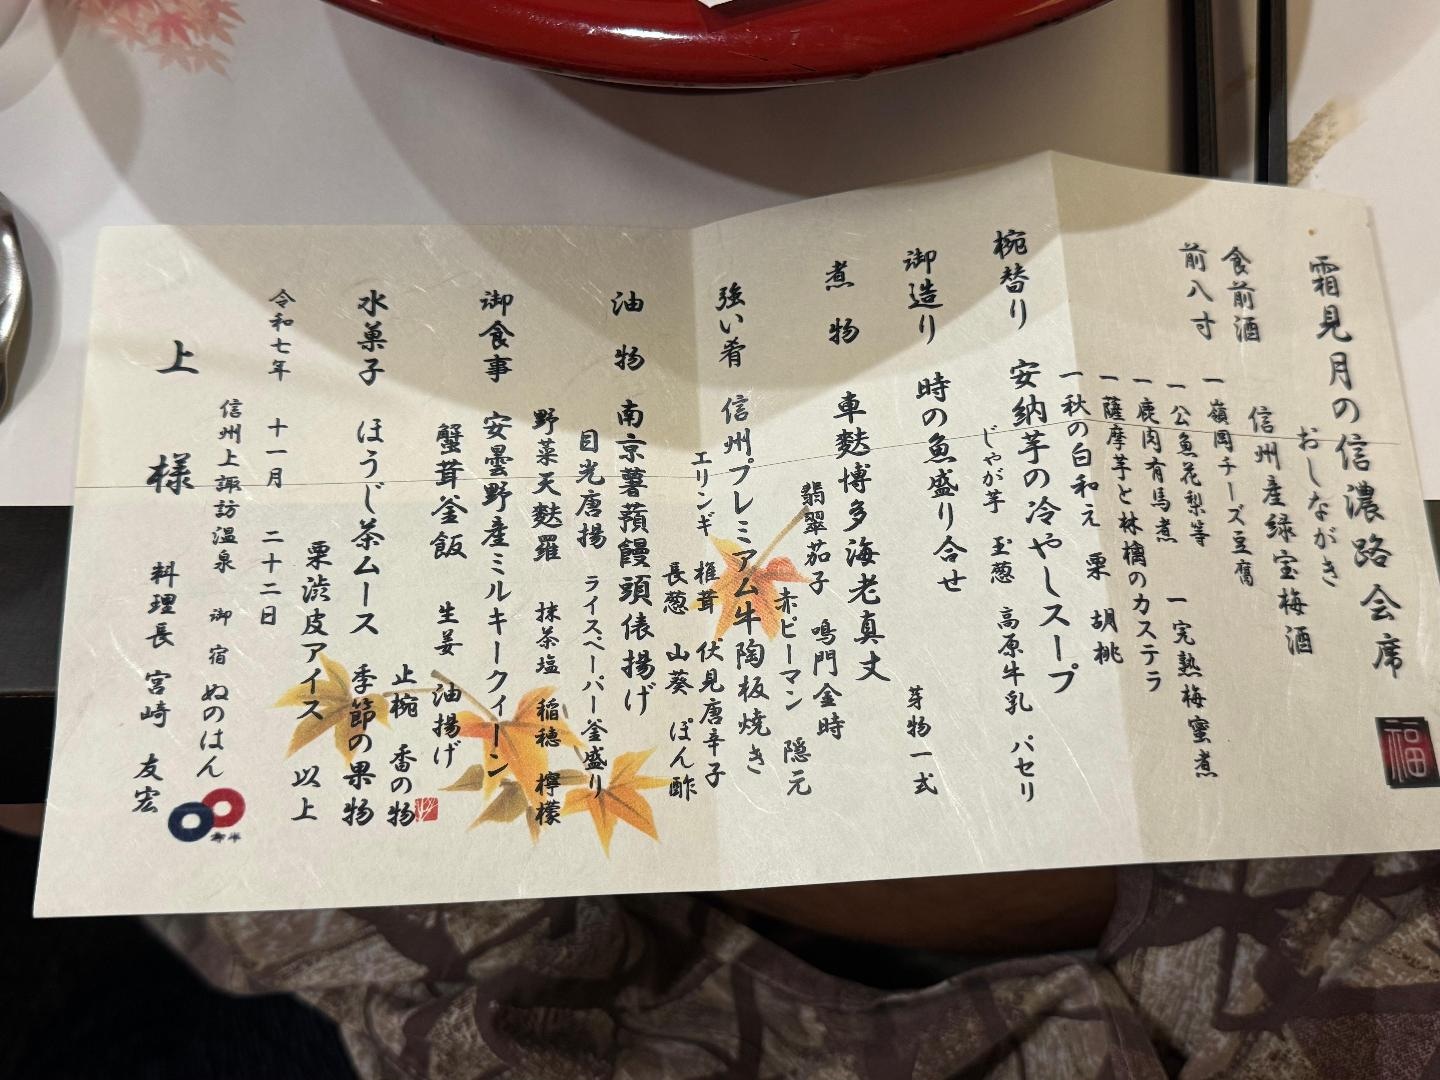 霜見月の信濃路会席
おしながき
食前酒 信州産緑宝梅酒
前八寸 一嶺岡チーズ豆腐 一完熟梅蜜煮
一公魚花梨等
一鹿肉有馬煮
一薩摩芋と林檎のカステラ
一秋の白和え 栗 胡桃
椀替り 安納芋の冷やしスープ
じゃが芋 玉葱 高原牛乳 パセリ
御造り 時の魚盛り合せ 芽物一式
煮物 車麩博多海老真丈
翡翠茄子 鳴門金時
赤ピーマン 隠元
強い肴 信州プレミアム牛陶板焼き
エリンギ 椎茸 伏見唐辛子
長葱 山葵 ぽん酢
油物 南京薯蕷饅頭俵揚げ
目光唐揚 ライスペーパー釜盛り
野菜天麩羅 抹茶塩 稲穂 檸檬
御食事 安曇野産ミルキークィーン
蟹茸釜飯 生姜 油揚げ
止椀 香の物
水菓子 ほうじ茶ムース 季節の果物
栗渋皮アイス 以上
令和七年 十一月 二十二日
信州上諏訪温泉 御宿 ぬのはん
料理長 宮崎 友宏
上様
福